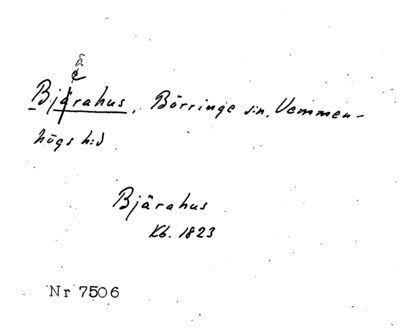 Bjärahus, Börringe s:n, Vemmen-
högs h:d
Bjärahus
Kb. 1823
Nr 7506